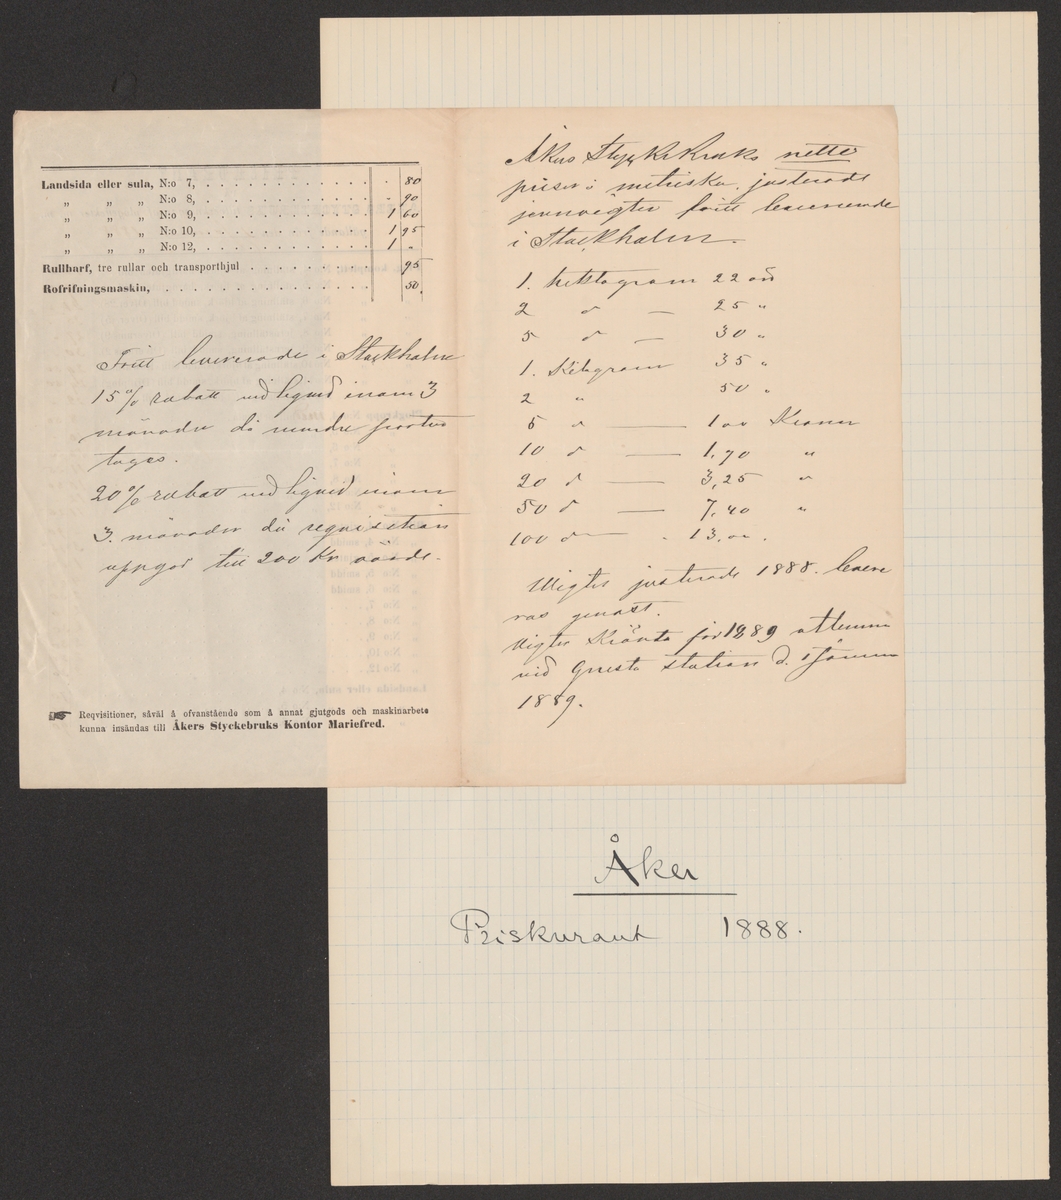 Landsida eller sula, N:o 7, . . . . . . . . . . . . . . 80
„ „ „ N:o 8, . . . . . . . . . . . . . „ 90
„ „ „ N:o 9, . . . . . . . . . . . . . 1 60
„ „ „ N:o 10, . . . . . . . . . . . . . 1 95
„ „ „ N:o 12, . . . . . . . . . . . . . 1 „
Rullharf, tre rullar och transporthjul . . . . . . . . . 95
Rofrifningsmaskin, . . . . . . . . . . . . . . . . 50.
Fritt levererade i Stockholm
15% rabatt vid liqvid inom 3
månader då mindre partier
tages.
20% rabatt vid liqvid inom
3. månader då reqvisition
uppgår till 200 Kr värde.
Reqvisitioner, såväl å ofvanstående som å annat gjutgods och maskinarbete
kunna insändas till Åkers Styckebruks Kontor Mariefred.
Åkers Styckebruks netto
priser å metriska, justerade
jernvigter fritt levererade
i Stockholm.
1. hektogram 22 öre
2 d — 25 „
5 d — 30 „
1. Kilogram 35 „
2 „ 50 „
5 d — 1 00 Kronor
10 d — 1,70 „
20 d — 3,25 „
50 d — 7,40 „
100 d — 13,00.
Vigter justerade 1888. leve
ras genast.
Vigter Krönta för 1889 aflemnas
vid Gnesta station d. 1 Januari
1889.
Åker
Priskurant 1888.